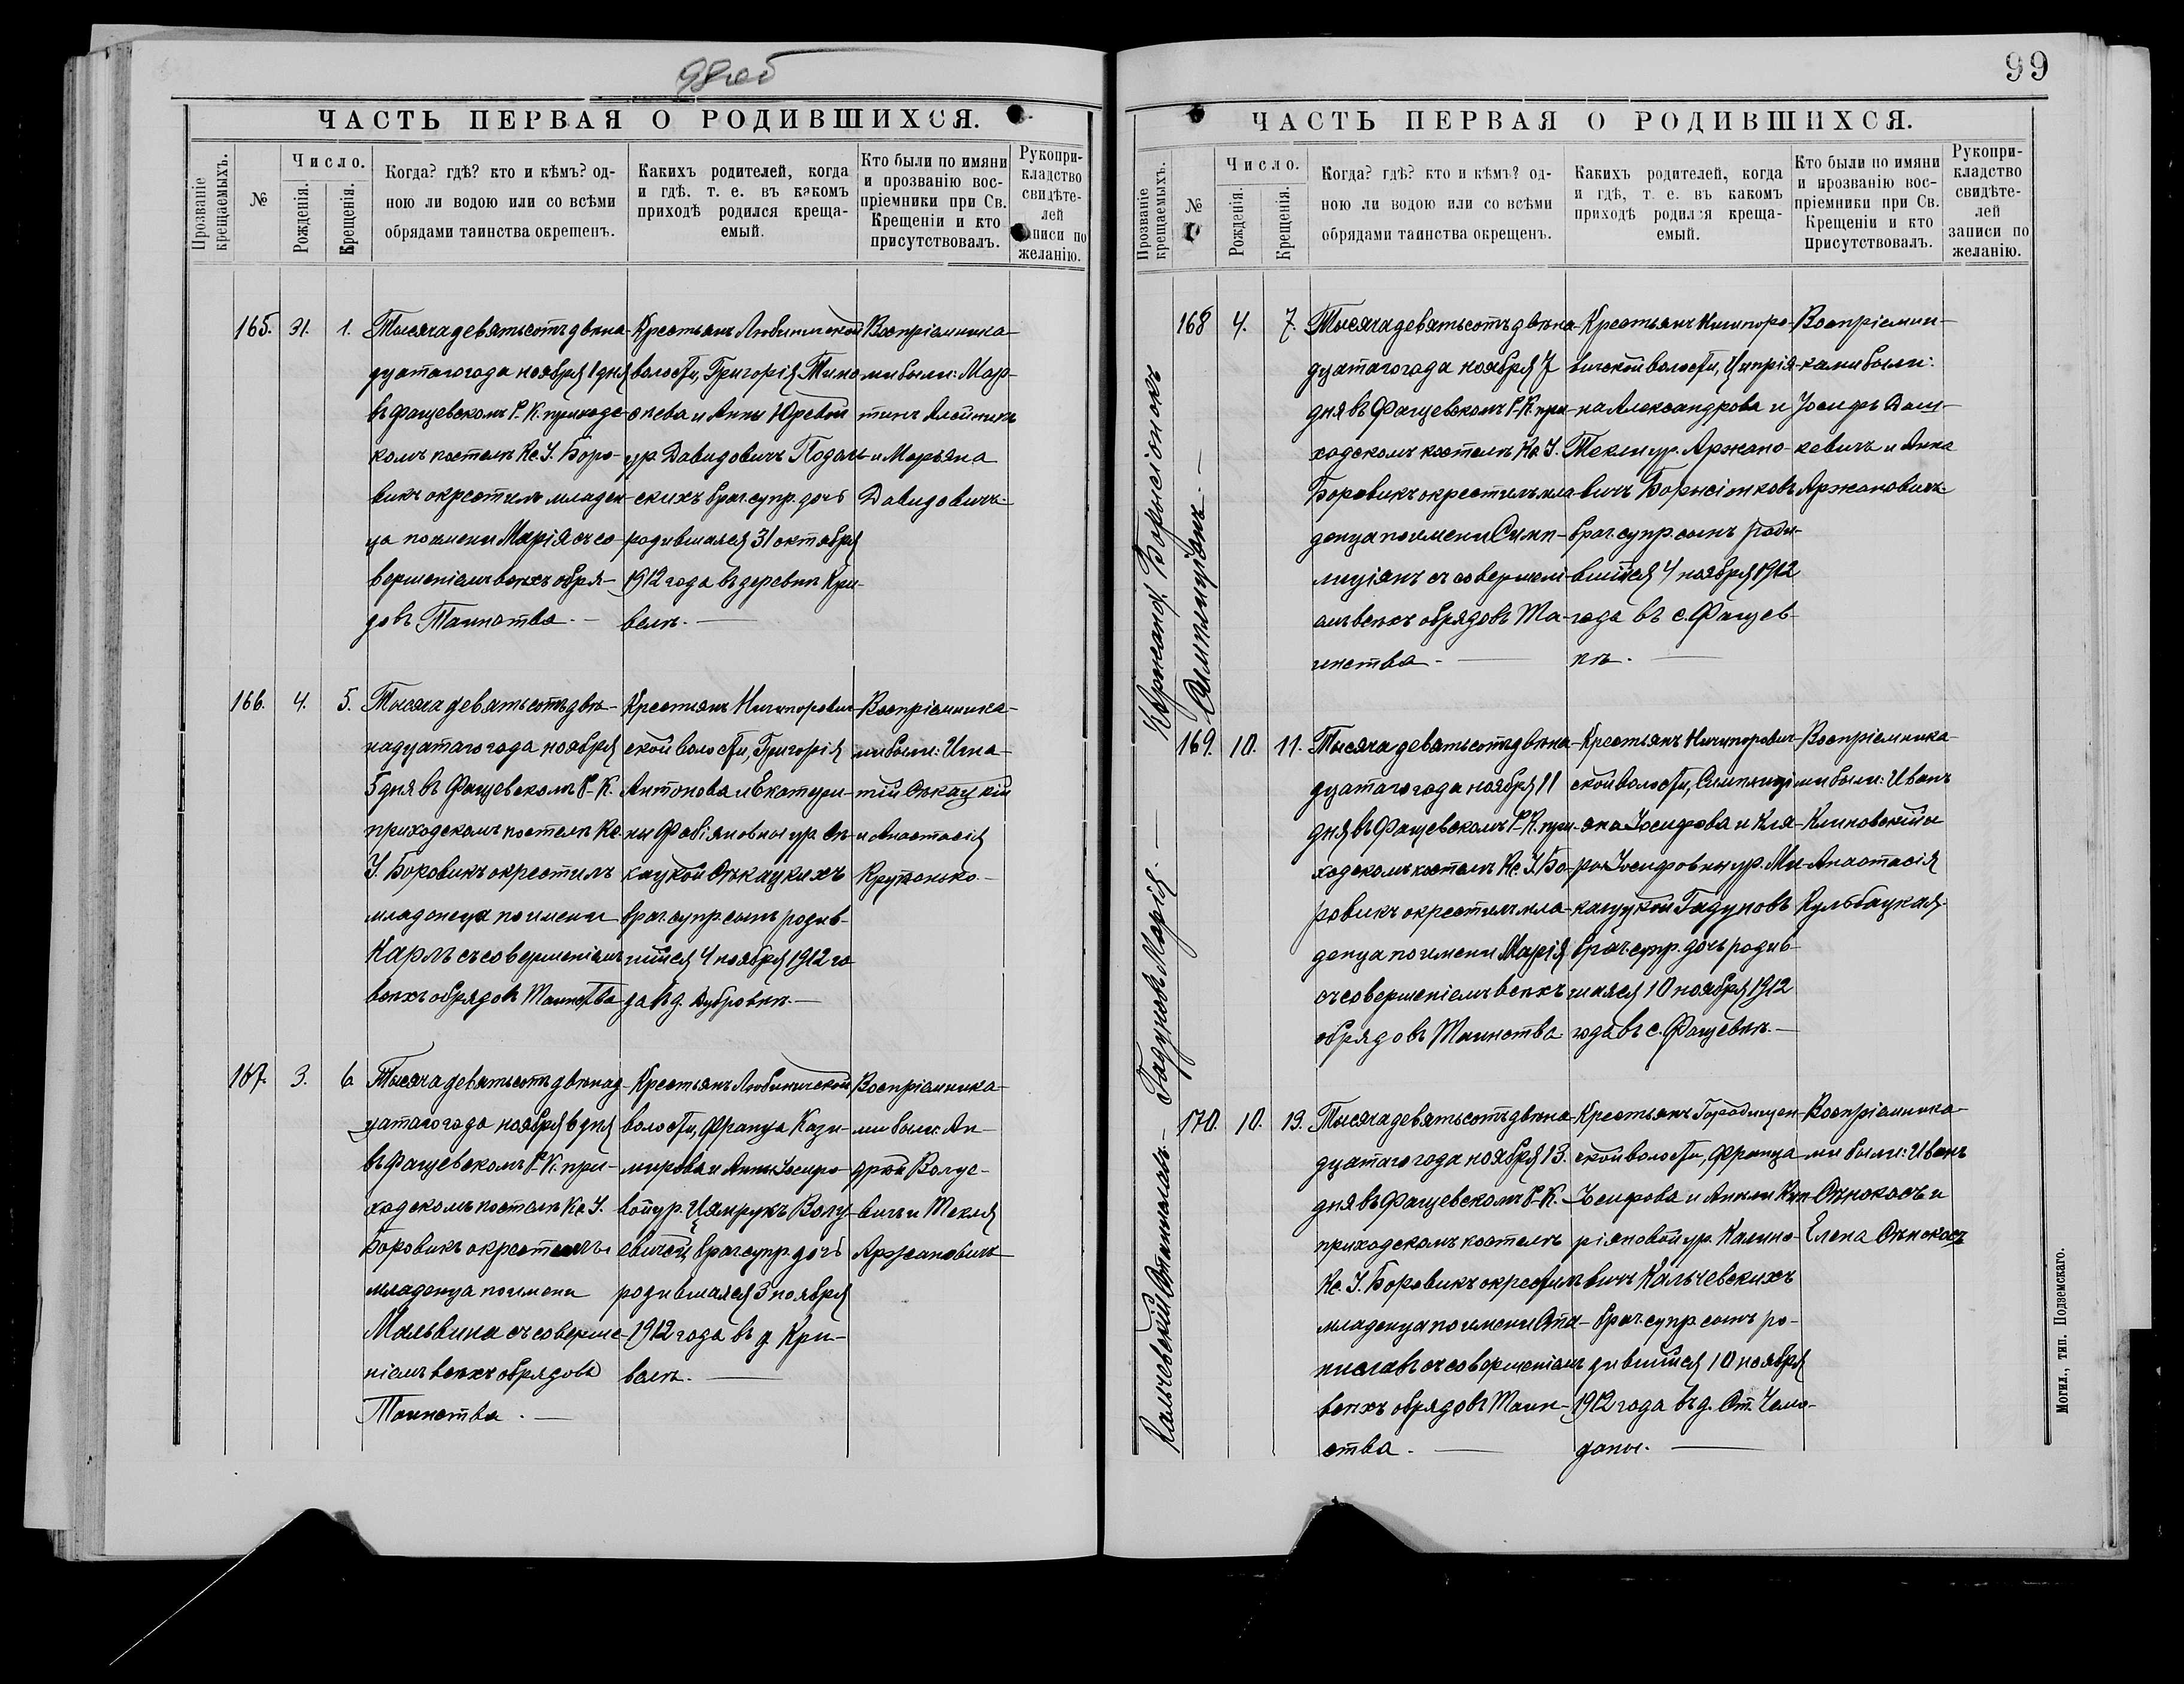 98 об
ЧАСТЬ ПЕРВАЯ О РОДИВШИХСЯ.
Прозваніе крещаемыхъ.
№
Число.
Рожденія.
Крещенія.
Когда? гдѣ? кто и кѣмъ? од-
ною ли водою или со всѣми
обрядами таинства окрещенъ.
Какихъ родителей, когда
и гдѣ. т. е. въ какомъ
приходѣ родился креща-
емый.
Кто были по имяни
и прозванію вос-
пріемники при Св.
Крещеніи и кто
присутствовалъ.
Рукопри-
кладство
свидѣте-
лей
записи по
желанію.
165.
31.
1.
Тысяча девятьсотъ двѣна-
дцатаго года ноября 1 дня
въ Фащевскомъ Р. К. приходс-
комъ костелѣ Кс. І. Боро-
викъ окрестилъ младен-
ца по имени Марія съ со-
вершеніемъ всѣхъ обря-
довъ Таинства.
Крестьянъ Любиничской
волости, Григорія Тимо-
ѳеева и Анны Юрьевой
ур. Давидовичъ
браг. супр. дочь
родившаяся 31 октября
1912 года въ деревнѣ Кри-
велѣ.
Воспріемника-
ми были: Мар-
тинъ Алейникъ
и Марьяна
Давидовичъ.
166.
4.
5.
Тысяча девятьсотъ двѣ-
надцатаго года ноября
5 дня въ Фащевскомъ Р. К.
приходскомъ костелѣ Кс.
І. Боровикъ окрестилъ
младенца по имени
Карлъ съ совершеніемъ
всѣхъ обрядовъ Таинства
Крестьянъ Ничипорович-
ской волости, Григорія
Антонова и Екатери-
ны Фабіяновны ур. Сѣ-
кацкой Сѣкацкихъ
браг. супр. сынъ родив-
шійся 4 ноября 1912 го-
да въ д. Дубровкѣ.
Воспріемника-
ми были: Игна-
тій Сѣкацкій
и Анастасія
167.
3.
6
Тысяча девятьсотъ двѣнад-
цатаго года ноября 6 дня
въ Фащевскомъ Р. К. при-
ходскомъ костелѣ Кс. І.
Боровикъ окрестилъ
младенца по имени
Мальвина съ соверше-
ніемъ всѣхъ обрядовъ
Таинства.
Крестьянъ Любиничской
волости, Франца Кази-
мирова и Анны Іосифо-
вой ур. Цямрукъ Валу-
евичей, браг. супр. дочь
родившаяся 3 ноября
1912 года въ д. Кри-
велѣ.
Воспріемника-
ми были: Ан-
дрей Валуе-
вичъ и Текля
Аржановичъ
99
ЧАСТЬ ПЕРВАЯ О РОДИВШИХСЯ.
Прозваніе крещаемыхъ.
№
Число.
Рожденія.
Крещенія.
Когда? гдѣ? кто и кѣмъ? од-
ною ли водою или со всѣми
обрядами таинства окрещенъ.
Какихъ родителей, когда
и гдѣ, т. е. въ какомъ
приходѣ родился креща-
емый.
Кто были по имяни
и прозванію вос-
пріемники при Св.
Крещеніи и кто
присутствовалъ.
Рукопри-
кладство
свидѣте-
лей
записи по
желанію.
Борысіонокъ
Симплиціянъ.
168
4.
7.
Тысяча девятьсотъ двѣна-
дцатаго года ноября 7
дня въ Фащевскомъ Р. К. при-
ходскомъ костелѣ Кс. І.
Боровикъ окрестилъ мла-
денца по имени Симп-
лиціянъ съ совершені-
емъ всѣхъ обрядовъ Та-
инства.
Крестьянъ Ничипоро-
вичской волости, Ципрія-
на Александрова и
Текли ур. Аржано-
вичъ Борысіонковъ
браг. супр. сынъ роди-
вшійся 4 ноября 1912
года въ с. Фащев-
кѣ.
Воспріемни-
ками были:
Іосифъ Даш-
кевичъ и Анна
Аржановичъ.
Гадуновъ Марія.
169.
10.
11.
Тысяча девятьсотъ двѣна-
дцатаго года ноября 11
дня въ Фащевскомъ Р. К. при-
ходскомъ костелѣ Кс. І. Бо-
ровикъ окрестилъ мла-
денца по имени Марія
съ совершеніемъ всѣхъ
обрядовъ Таинства.
Крестьянъ Ничипорович-
ской волости, Симплиці-
яна Іосифова и Кля-
ры Іосифовны ур. Ма-
кацукой Гадуновъ
браг. супр. дочь родив-
шаяся 10 ноября 1912
года въ с. Фащевкѣ.
Воспріемника-
ми были: Иванъ
Клиновскій и
Анастасія
Кульбацкая.
Кальчевскій Станиславъ.
170.
10.
13.
Тысяча девятьсотъ двѣна-
дцатаго года ноября 13.
дня въ Фащевскомъ Р. К.
приходскомъ костелѣ
Кс. І. Боровикъ окрестилъ
младенца по имени Ста-
ниславъ съ совершеніемъ
всѣхъ обрядовъ Таин-
ства.
Крестьянъ Городищен-
ской волости, Франца
Іосифова и Анели Кип-
ріяновой ур. Калино-
вичъ Кальчевскихъ
браг. супр. сынъ ро-
дившійся 10 ноября
1912 года въ д. Ст. Чемо-
даны.
Воспріемника-
ми были: Иванъ
Сѣнокосъ и
Елена Сѣнокосъ
Могил., тип. Подземскаго.